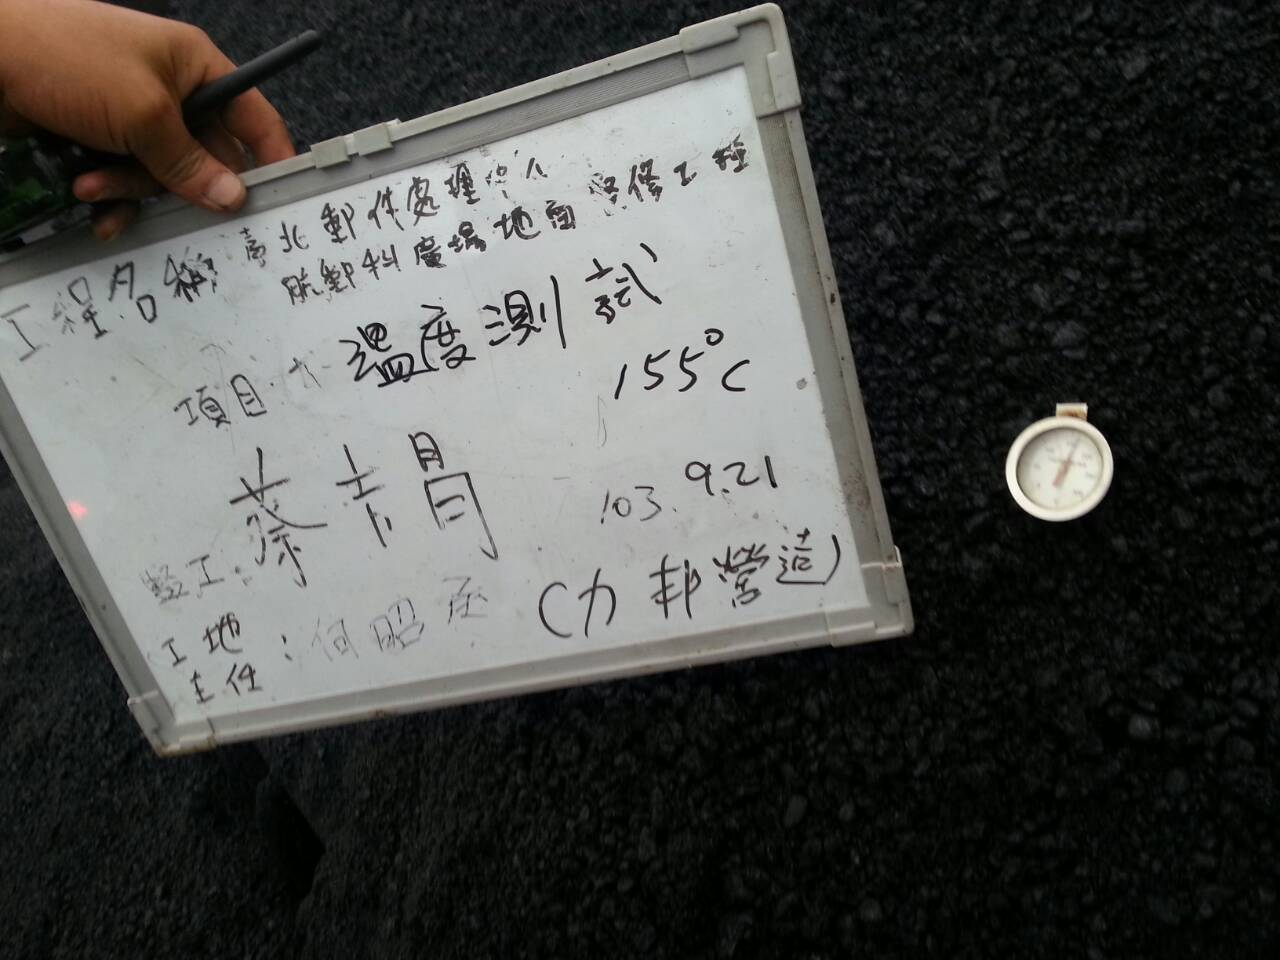 工程名稱:臺北郵件處理中心
航郵科廣場地面整修工程
項目:溫度測試
155°C
103.9.21
監工:
工地主任:何昭
(力邦營造)